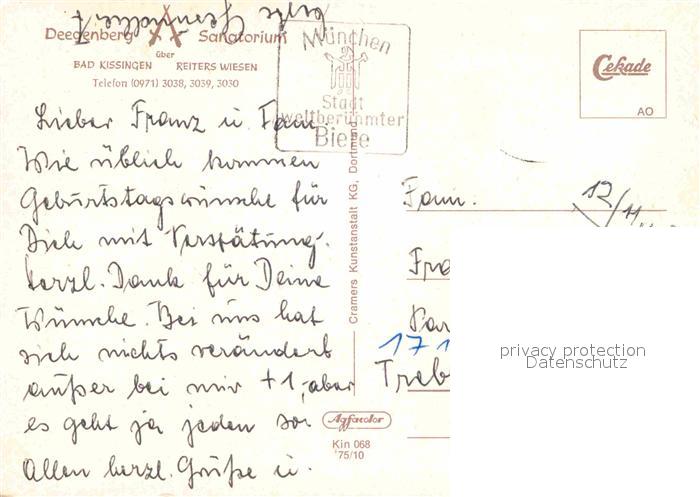 beste Gesundheit
Deegenberg Sanatorium
über
BAD KISSINGEN REITERS WIESEN
Telefon (0971) 3038, 3039, 3030
München
Stadt
weltberühmter
Biere
Cekade
AO
Lieber Franz u. Fam.
Wie üblich kommen
Geburtstagswünsche für
Dich mit Verspätung.
herzl. Dank für Deine
Wünsche. Bei uns hat
sich nichts verändert
außer bei mir +1, aber
es geht ja jeden so.
Allen herzl. Grüße u.
Cramers Kunstanstalt KG, Dortmund
Agfacolor
Kin 068
'75/10
Fam.
12/11
Fra
17 1
Treb
privacy protection
Datenschutz